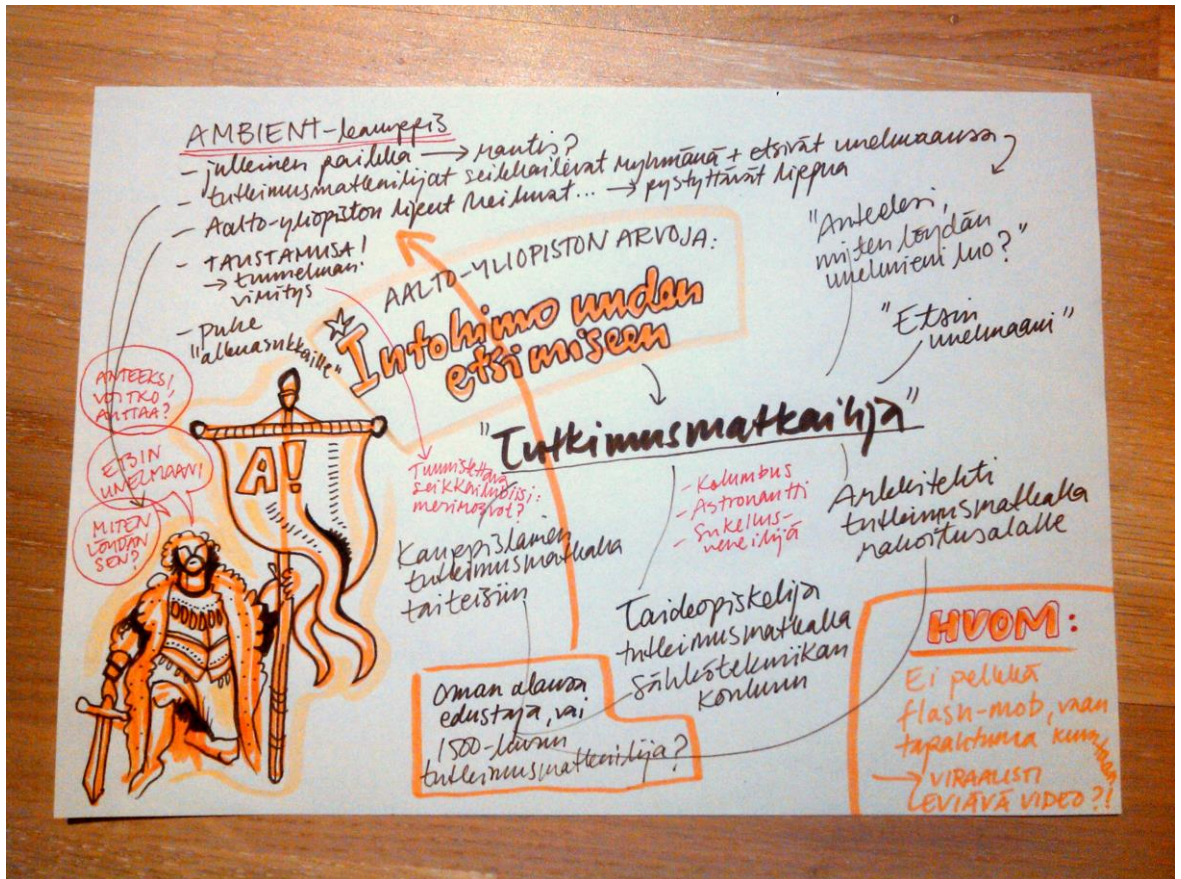 AMBIENT-kamppis
- julkinen paikka → rautis?
- tutkimusmatkailijat seikkailevat ryhmänä + etsivät unelmaansa
- Aalto-yliopiston liput heiluvat... → pystyttävät lippua
- TAUSTAMUSA!
→ tunnelman
viritys
- puhe
"alkuasukkaille"
AALTO-YLIOPISTON ARVOJA:
Intohimo uuden
etsimiseen
"Anteeksi,
miten löydän
unelmieni luo?"
"Etsin
unelmaani"
"Tutkimusmatkailija"
ANTEEKSI
VOITKO
AUTTAA?
ETSIN
UNELMAANI
MITEN
LÖYDÄN
SEN?
A!
Tunnistettava
seikkailubiisi:
merirosvot?
- Kolumbus
- Astronautti
- Sukellus-
veneilijä
Kauppislainen
tutkimusmatkalla
taiteisiin
Arkkitehti
tutkimusmatkalla
rahoitusalalle
Taideopiskelija
tutkimusmatkalla
sähkötekniikan
kouluun
Oman alansa
edustaja, vai
1500-luvun
tutkimusmatkailija?
HUOM:
Ei pelkkä
flash-mob, vaan
tapahtuma kuvataan
→ VIRAALISTI
LEVIÄVÄ VIDEO?!